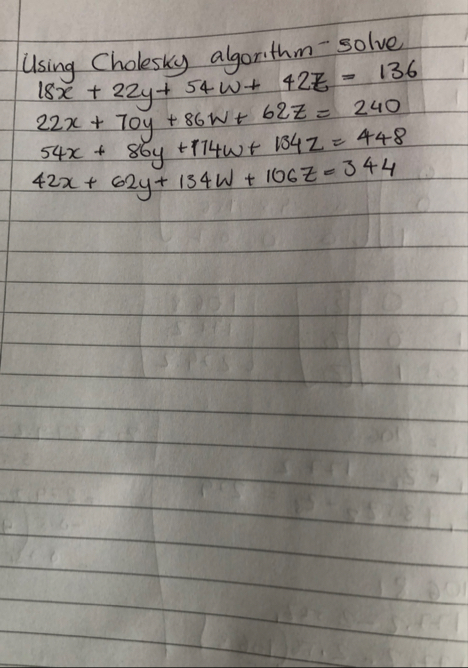 Using Cholesky algorithm - solve
18x + 22y + 54w + 42z = 136
22x + 70y + 86w + 62z = 240
54x + 86y + 174w + 134z = 448
42x + 62y + 134w + 106z = 344